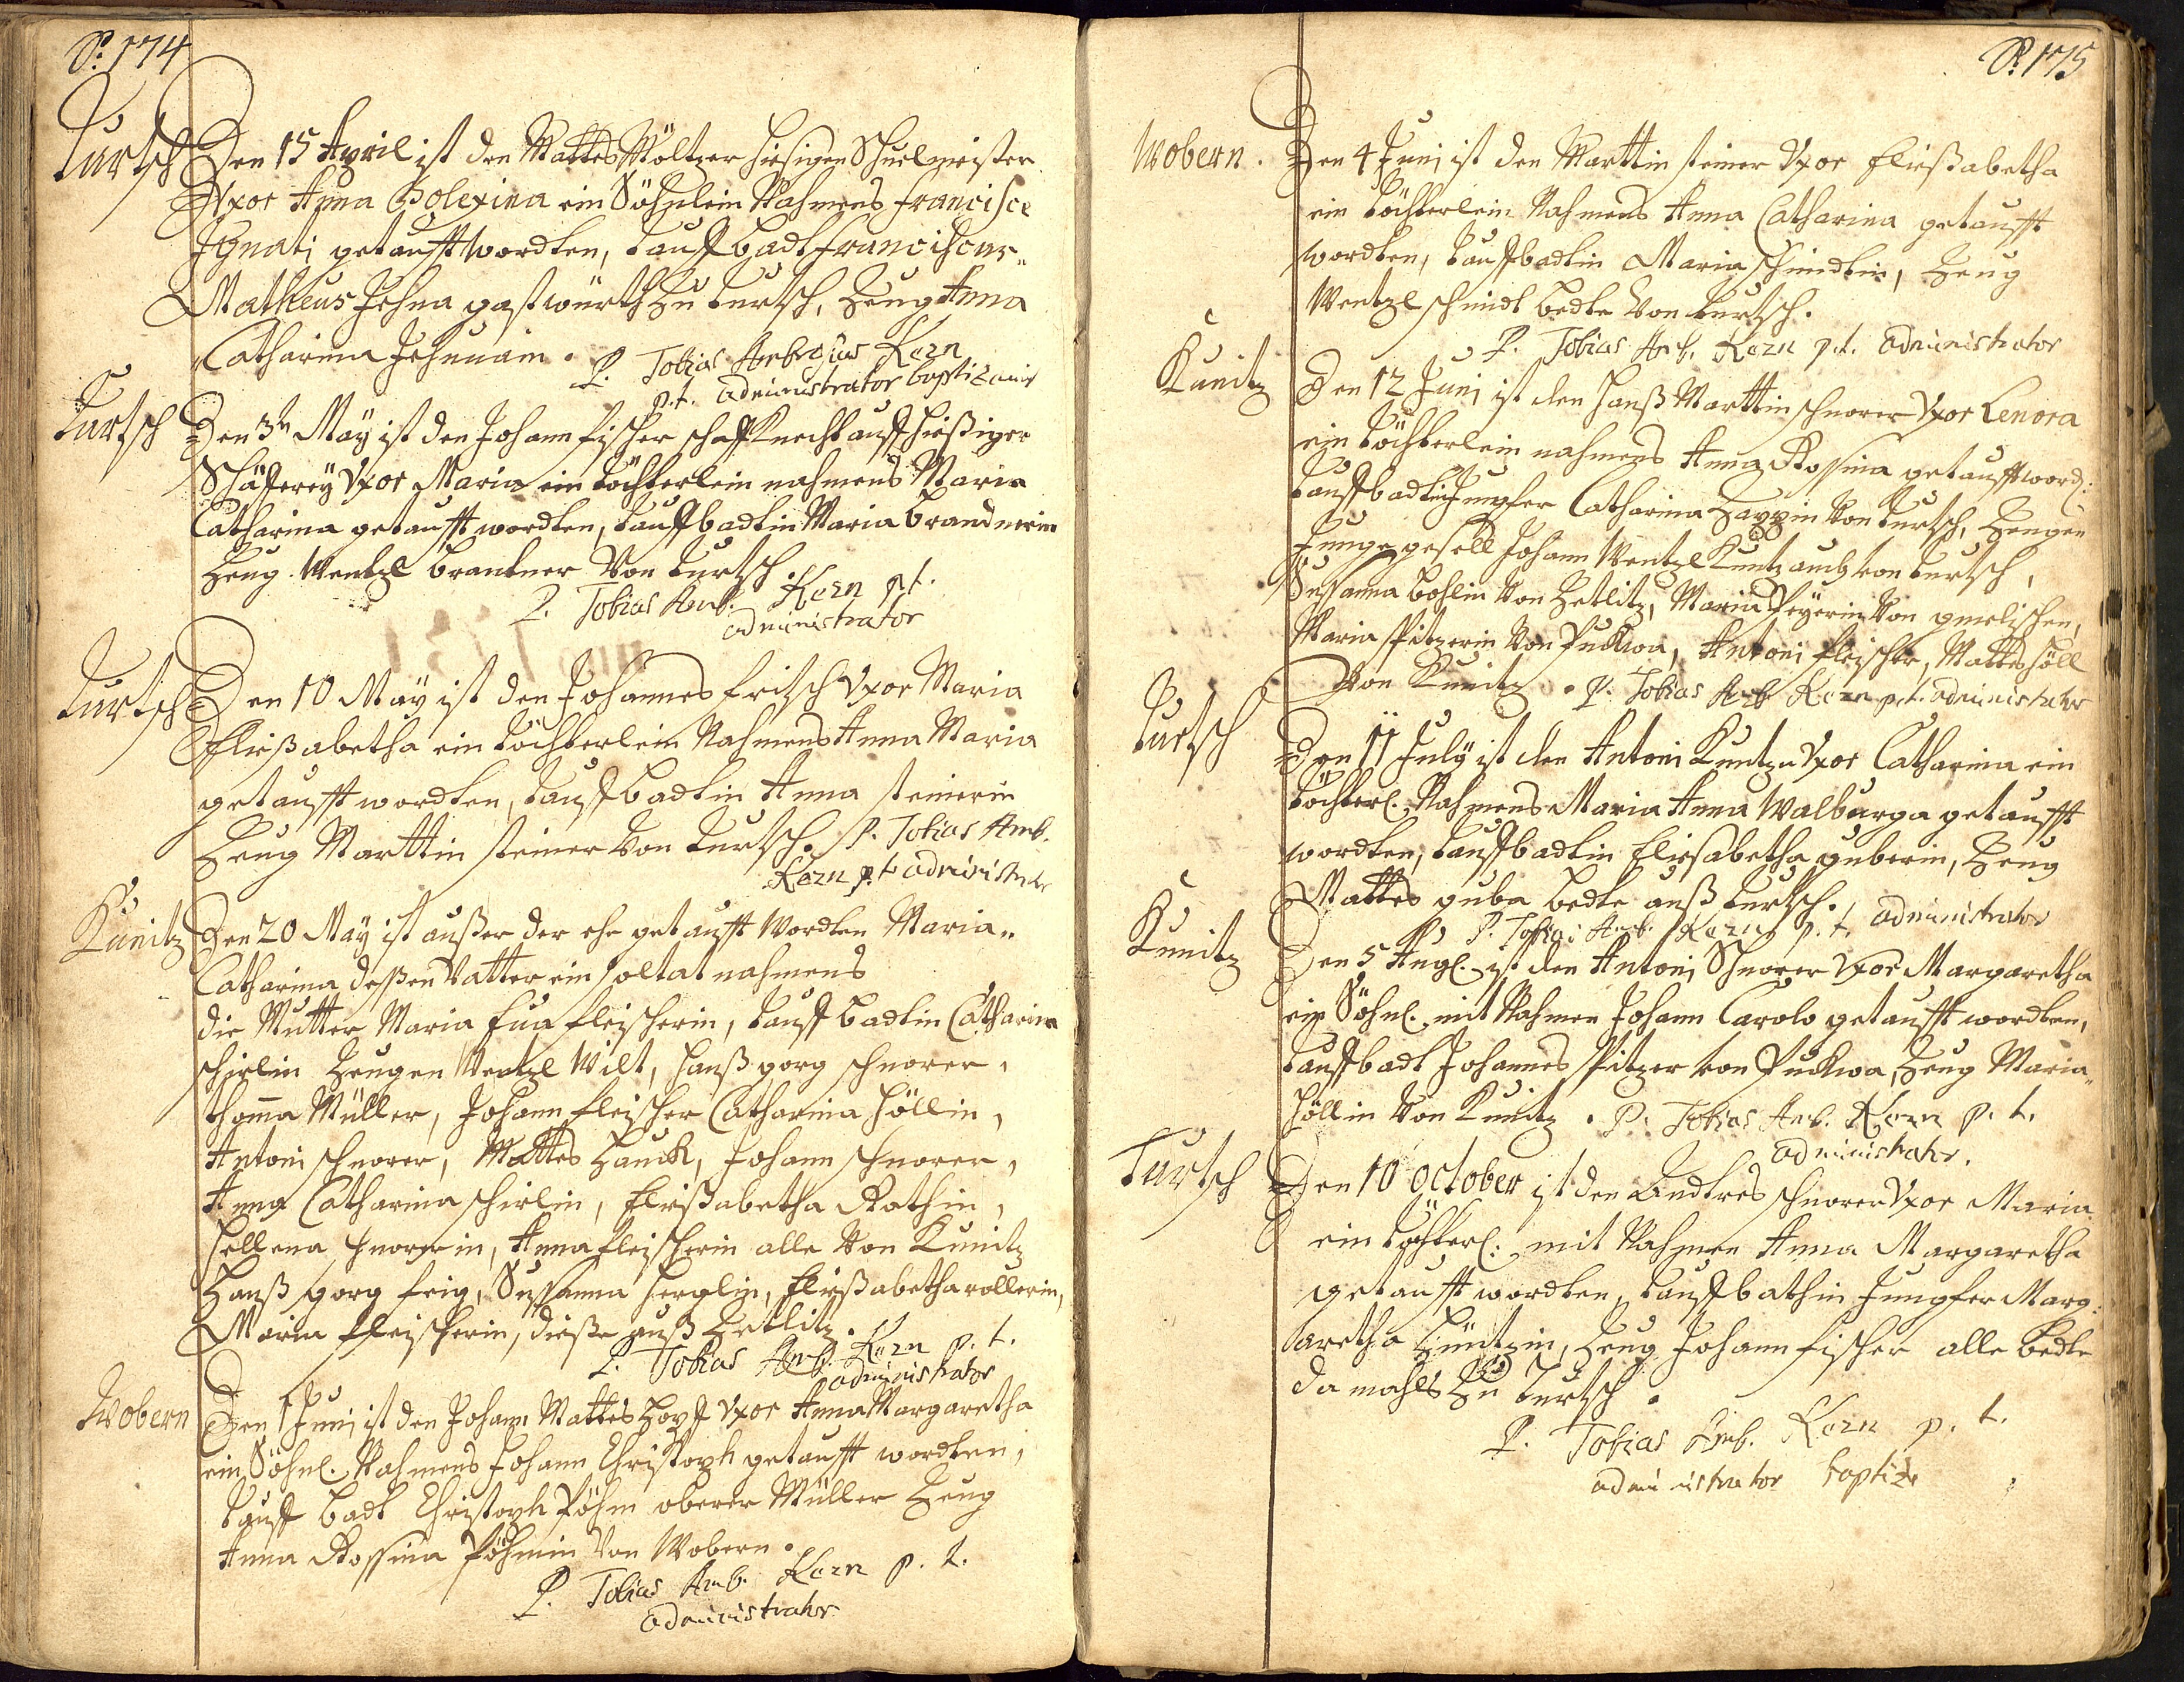 P: 174
Turtsch
Den 15 Aprill ist den Mattes Möltzer hiesigen Schuelmeister
Vxor Anna Polexina ein Söhnlein Nahmens Francisce
Ignati getaufft wordten, tauff badt Franciscus
Matheus Jehna gastwürth zu turtsch, Zeug Anna
Catharina Jehnnain. P. Tobias Ambrosius Korn
p.t. administrator baptizavit
Turtsch
Den 3t May ist den Johann fischer schaff Knecht auff hießiger
Schäferey Vxor Maria ein töchterlein nahmens Maria
Catharina getaufft wordten, tauff badtin Maria brandnerin
Zeug Wentzl brantner Von turtsch.
P. Tobias Amb. Korn p.t.
administrator
Turtsch
Den 10 May ist den Johannes fritsch Vxor Maria
Eließabetha ein töchterlein Nahmens Anna Maria
getaufft wordten, tauff badtin Anna steinerin
Zeug Marttin steiner Von turtsch. P. Tobias Amb.
Korn p.t. administrator
Kunitz
Den 20 May ist außer der ehe getaufft wordten Maria
Catharina deßen Vatter ein soltat nahmens
die Mutter Maria Eua fleischerin, tauff badtin Catharina
schirlin Zeugen Wentzl Wilt, Hanß gorg schnorer,
thoma Müller, Johann fleischer Catharina Höllin,
Antoni schnorer, Mattes Hauck, Johann schnorer,
Anna Catharina schirlin, Eließabetha Rothin,
Hellena schnorerin, Anna fleischerin alle Von Kunitz
Hanß gorg feig, Sussanna Herglin, Eließabetha rollerin,
Maria fleischerin, dieße auß Zetlitz.
P. Tobias Amb. Korn p.t.
administrator
Wobern
Den 1 Juni ist den Johann Mattes Hopf Vxor Anna Margaretha
ein Söhnl. Nahmens Johann Christoph getaufft wordten,
tauff badt Christoph Pöhm oberer Müller Zeug
Anna Rossina Pöhmin Von Wobern.
P. Tobias Amb. Korn p.t.
administrator
P: 175
Wobern.
Den 4 Juni ist den Marttin steiner Vxor Eließabetha
ein töchterlein Nahmens Anna Catharina getaufft
wordten, tauffbadtin Maria schmidtin, Zeug
Wentzl schmidt bedte Von turtsch.
P. Tobias Amb. Korn p.t. administrator
Kunitz
Den 12 Juni ist den Hanß Marttin schnorer Vxor Lenora
ein töchterlein nahmens Anna Rossina getaufft word:
tauffbadtin Jungfer Catharina Von turtsch, Zeugen
Junge gesell Johann Wentzl Kuntz auch von turtsch,
Sussanna bohlin Von Zetlitz, Maria Von gmelischen,
Maria spitzerin Von Puckwa, Antoni fleischer, Mattes Höll
Von Kunitz. P. Tobias Amb Korn p.t. administrator
Turtsch
Den 11 July ist den Antoni Kuntzn Vxor Catharina ein
töchterl. Nahmens Maria Anna Walburga getaufft
wordten, tauffbadtin Eliesabetha guberin, Zeug
Mattes guba bedte auß turtsch.
P. Tobias Amb. Korn p.t. administrator
Kunitz
Den 5 Augl. ist den Antoni Schnorer Vxor Margaretha
ein Söhnl. mit Nahmen Johann Carolo getaufft wordten,
tauffbadt Johannes spitzer von Puckwa, Zeug Maria
Höllin Von Kunitz. P. Tobias Amb. Korn p.t.
administrator.
Turtsch
Den 10 October ist den Andtres schnorer Vxor Maria
ein töchterl: mit Nahmen Anna Margaretha
getaufft wordten, tauffbathin Jungfer Marg:
aretha Züntzin, Zeug Johann fischer alle bedte
damahls Zu Turtsch.
P. Tobias Amb. Korn p.t.
administrator baptize